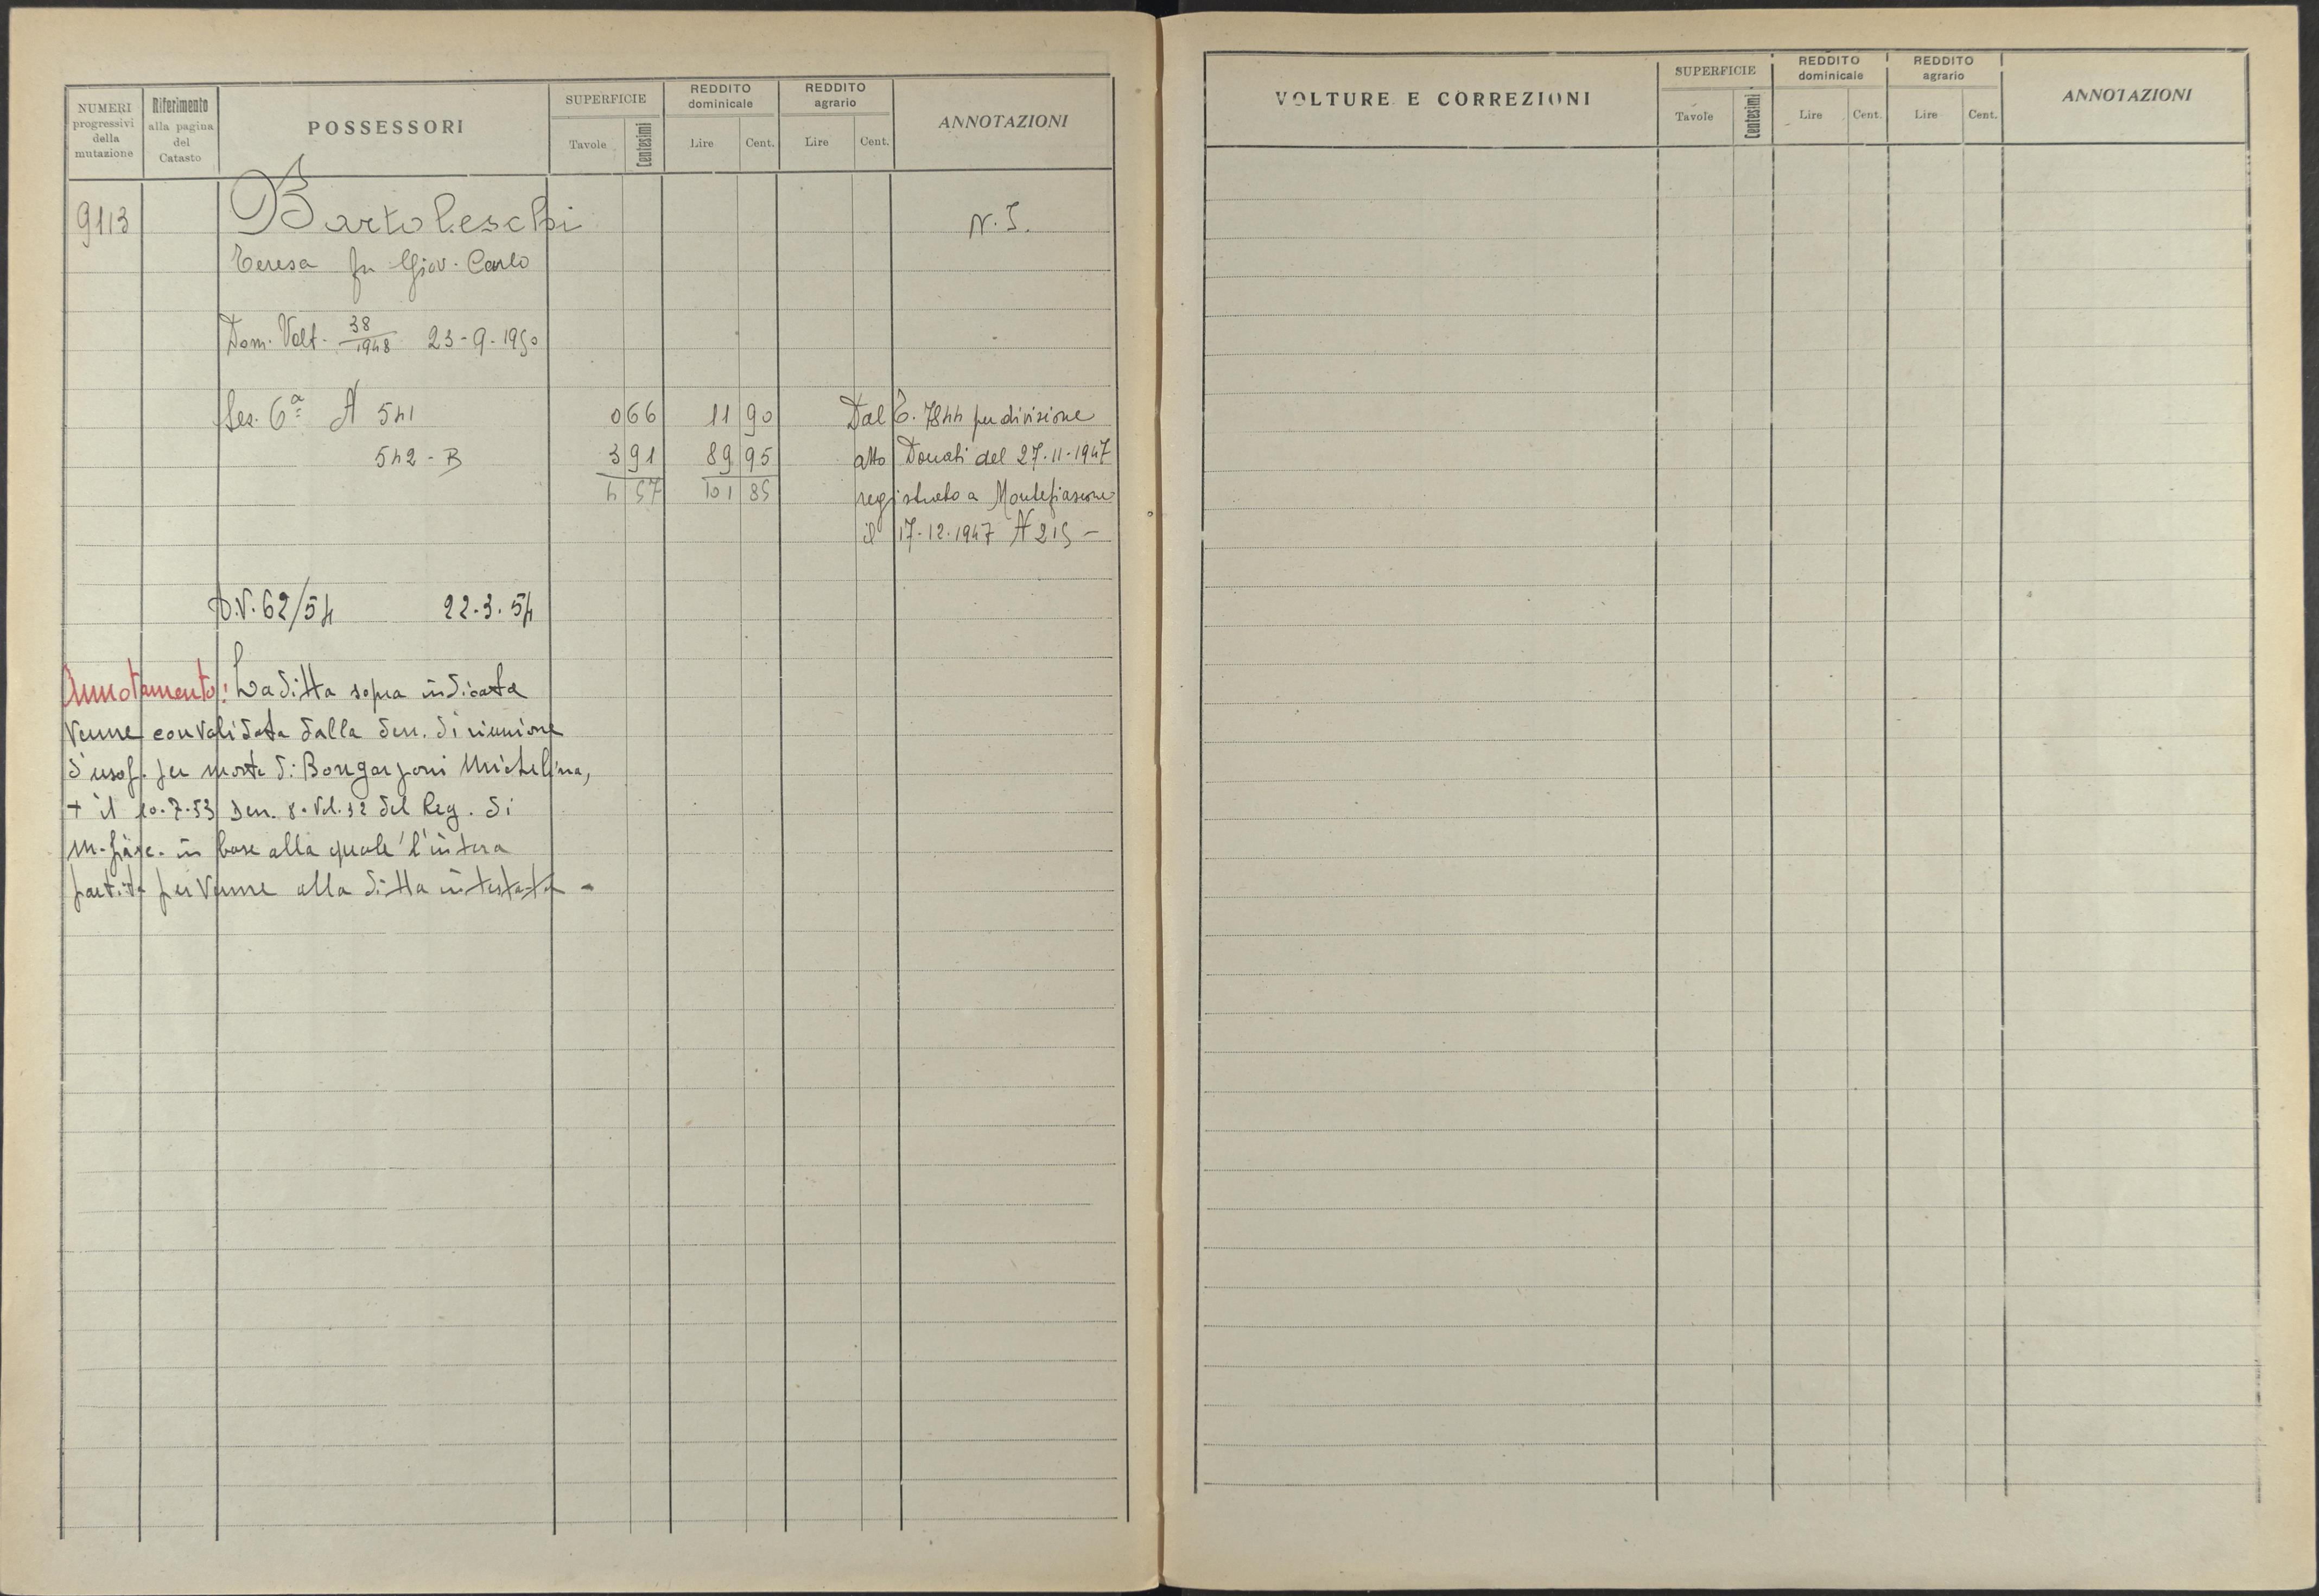 NUMERI progressivi della mutazione
Riferimento alla pagina del Catasto
POSSESSORI
SUPERFICIE
Tavole Centesimi
REDDITO dominicale
Lire Cent.
REDDITO agrario
Lire Cent.
ANNOTAZIONI
9113 Bartoleschi N. I.
Teresa fu Giov. Carlo
Dom. Volt. 38/1948 23-9-1950
Sez. 6ª N 541 0 66 11 90 Dal C. 7844 per divisione
542 - B 3 91 89 95 atto Donati del 27-11-1947
4 57 101 85 registrato a Montefiascone
il 17-12-1947 N 215 -
D.V. 62/54 22.3.54
Annotamento: La ditta sopra indicata
venne convalidata dalla den. di riunione
d'usof. per morte di Bongarzoni Michelina,
+ il 10.7.53 Den. 8. Vol. 32 del Reg. di
M. fiasc. in base alla quale l'intera
partita pervenne alla ditta intestata -
VOLTURE E CORREZIONI
SUPERFICIE
Tavole Centesimi
REDDITO dominicale
Lire Cent.
REDDITO agrario
Lire Cent.
ANNOTAZIONI